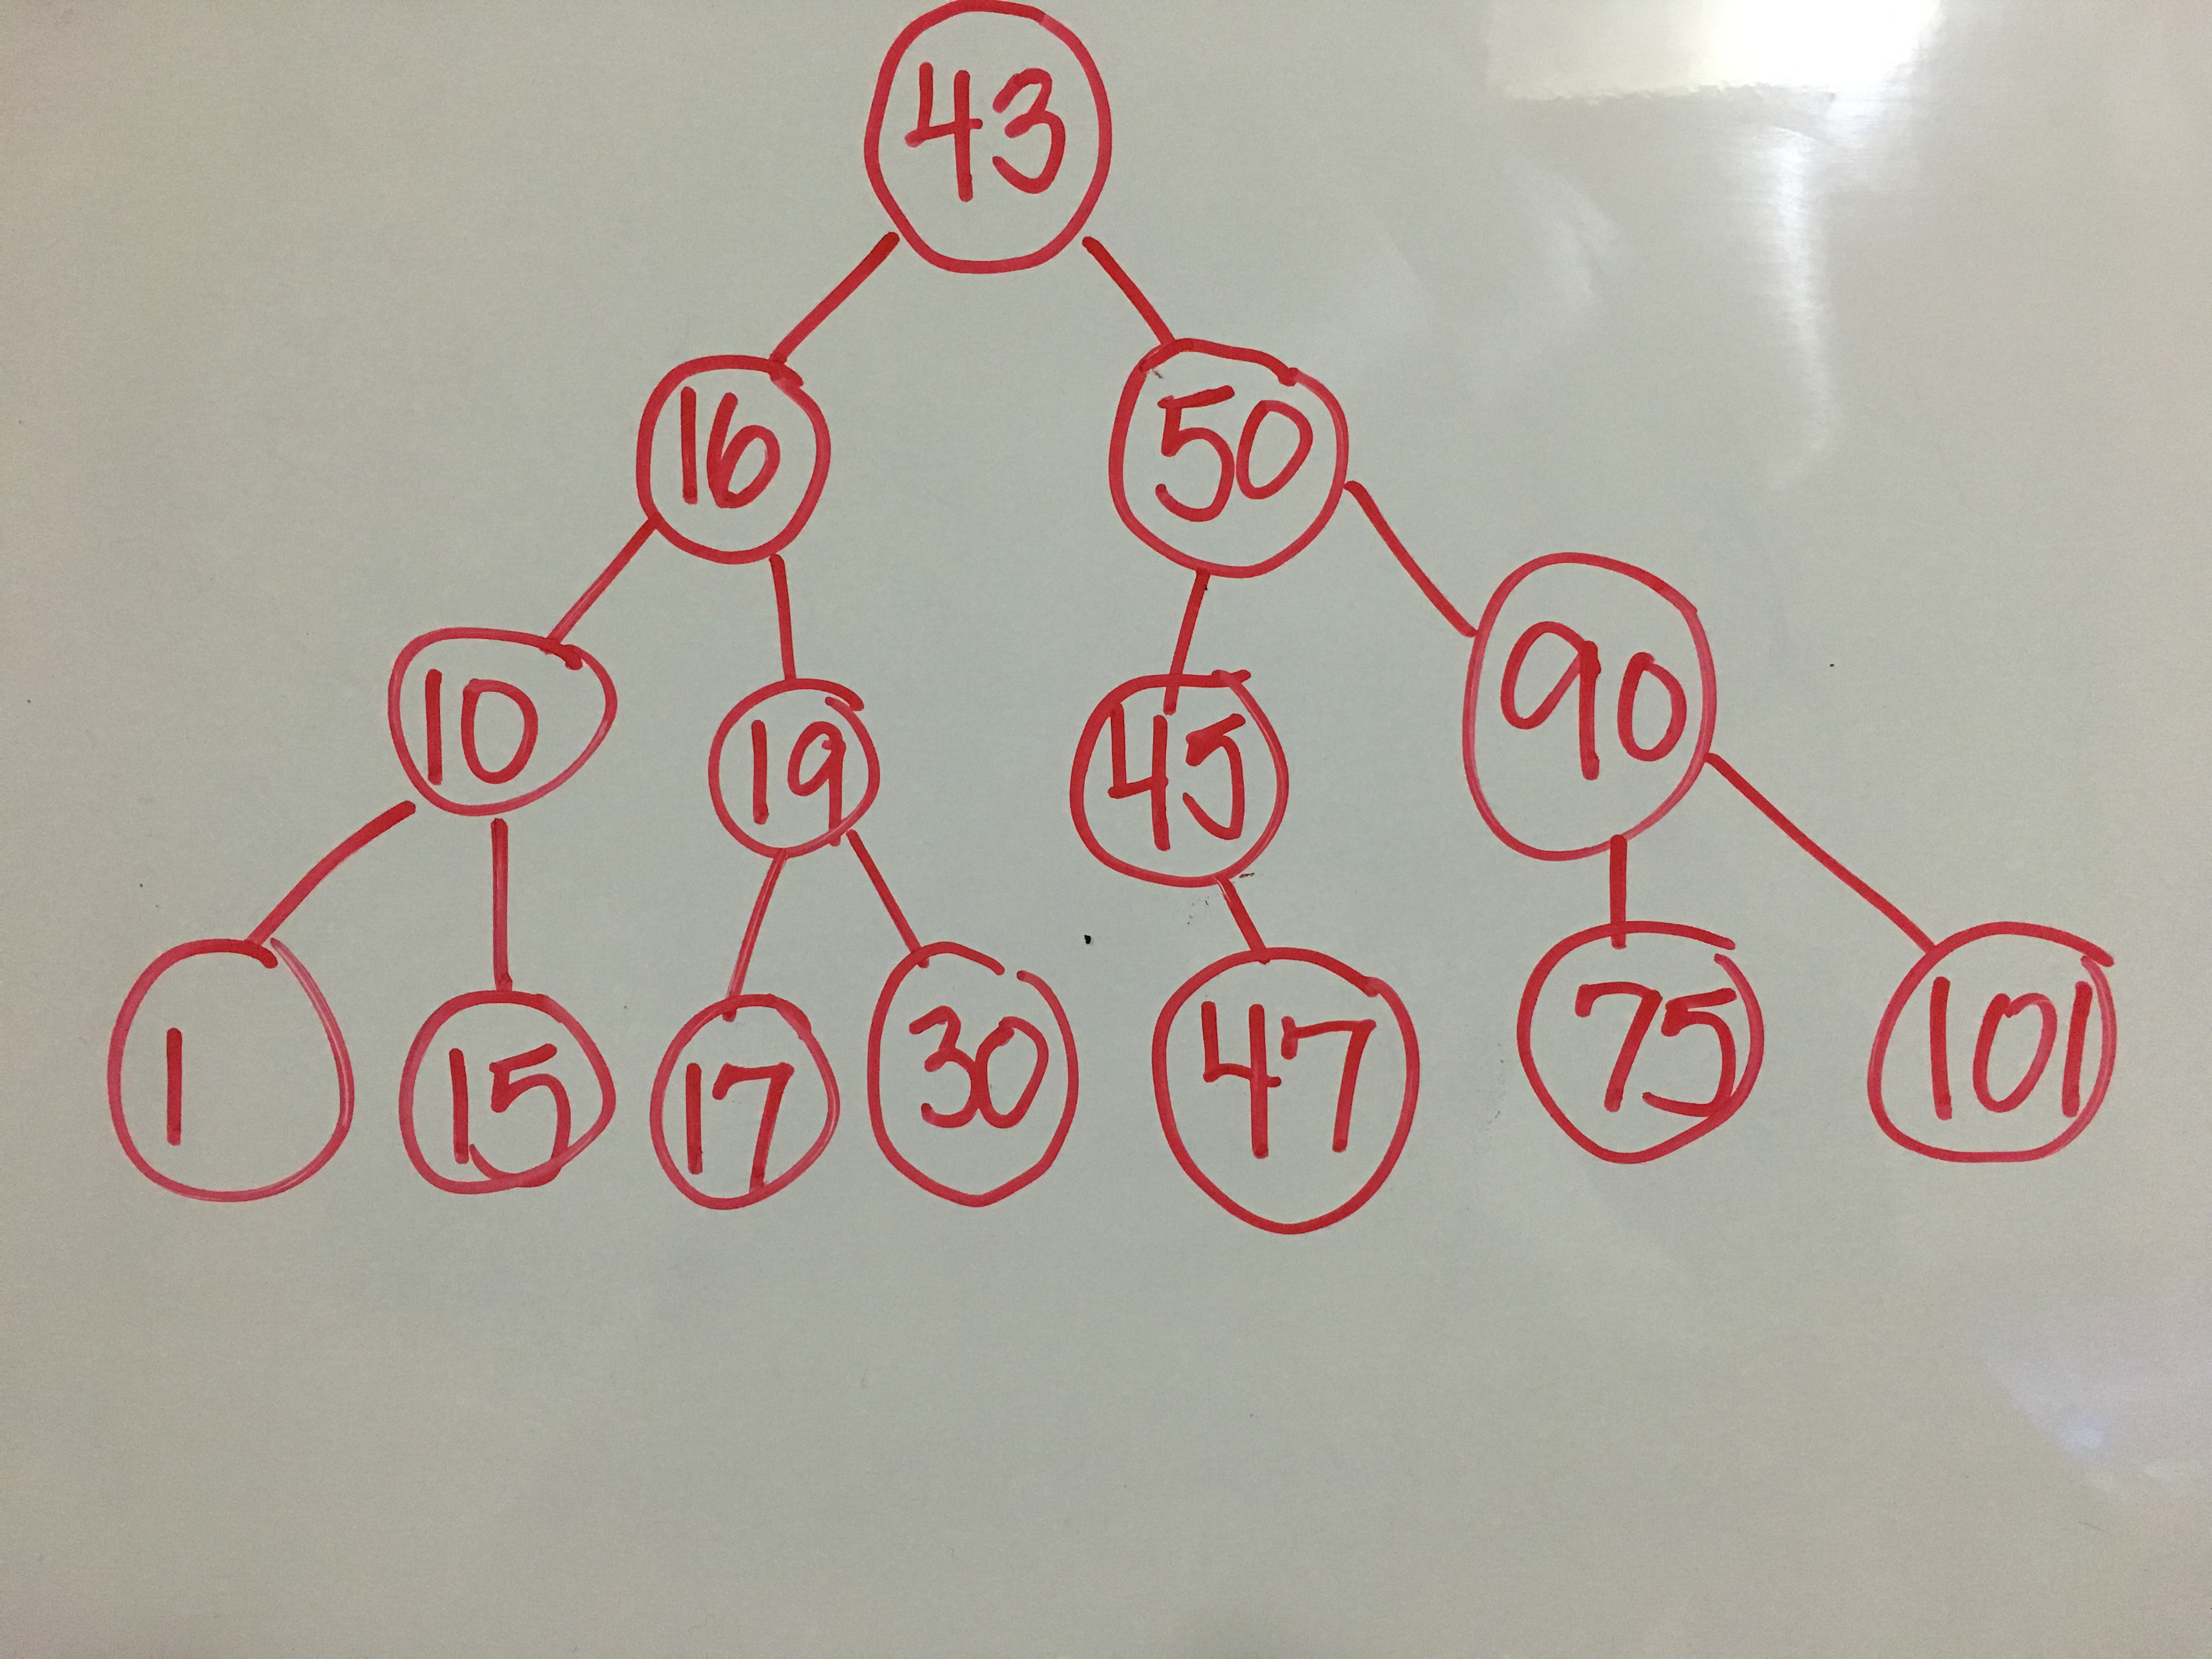 43
16 50
10 19 45 90
1 15 17 30 47 75 101